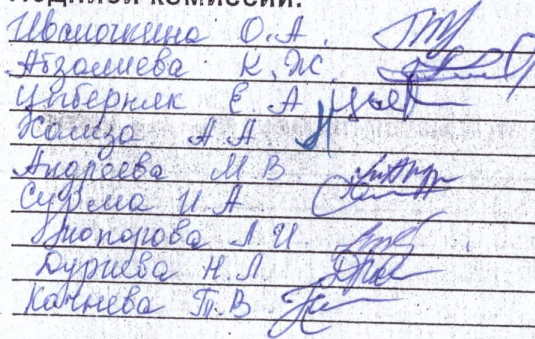 Подписи комиссии:
Ивaночкина О.А.
Абзалиева К.Ж.
Цыберняк Е А
Хамза А.А.
Андреева М В
Сурма И А
Л.И.
Дуриева Н.Л.
Качнева Т.В